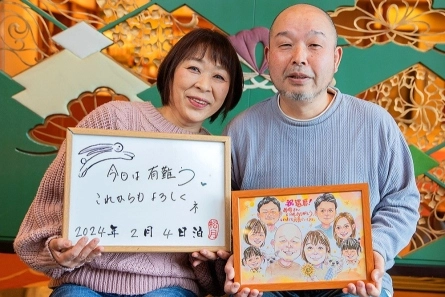 今日は有難う。
これからもよろしくネ
2024年 2月 4日泊
祝還暦!